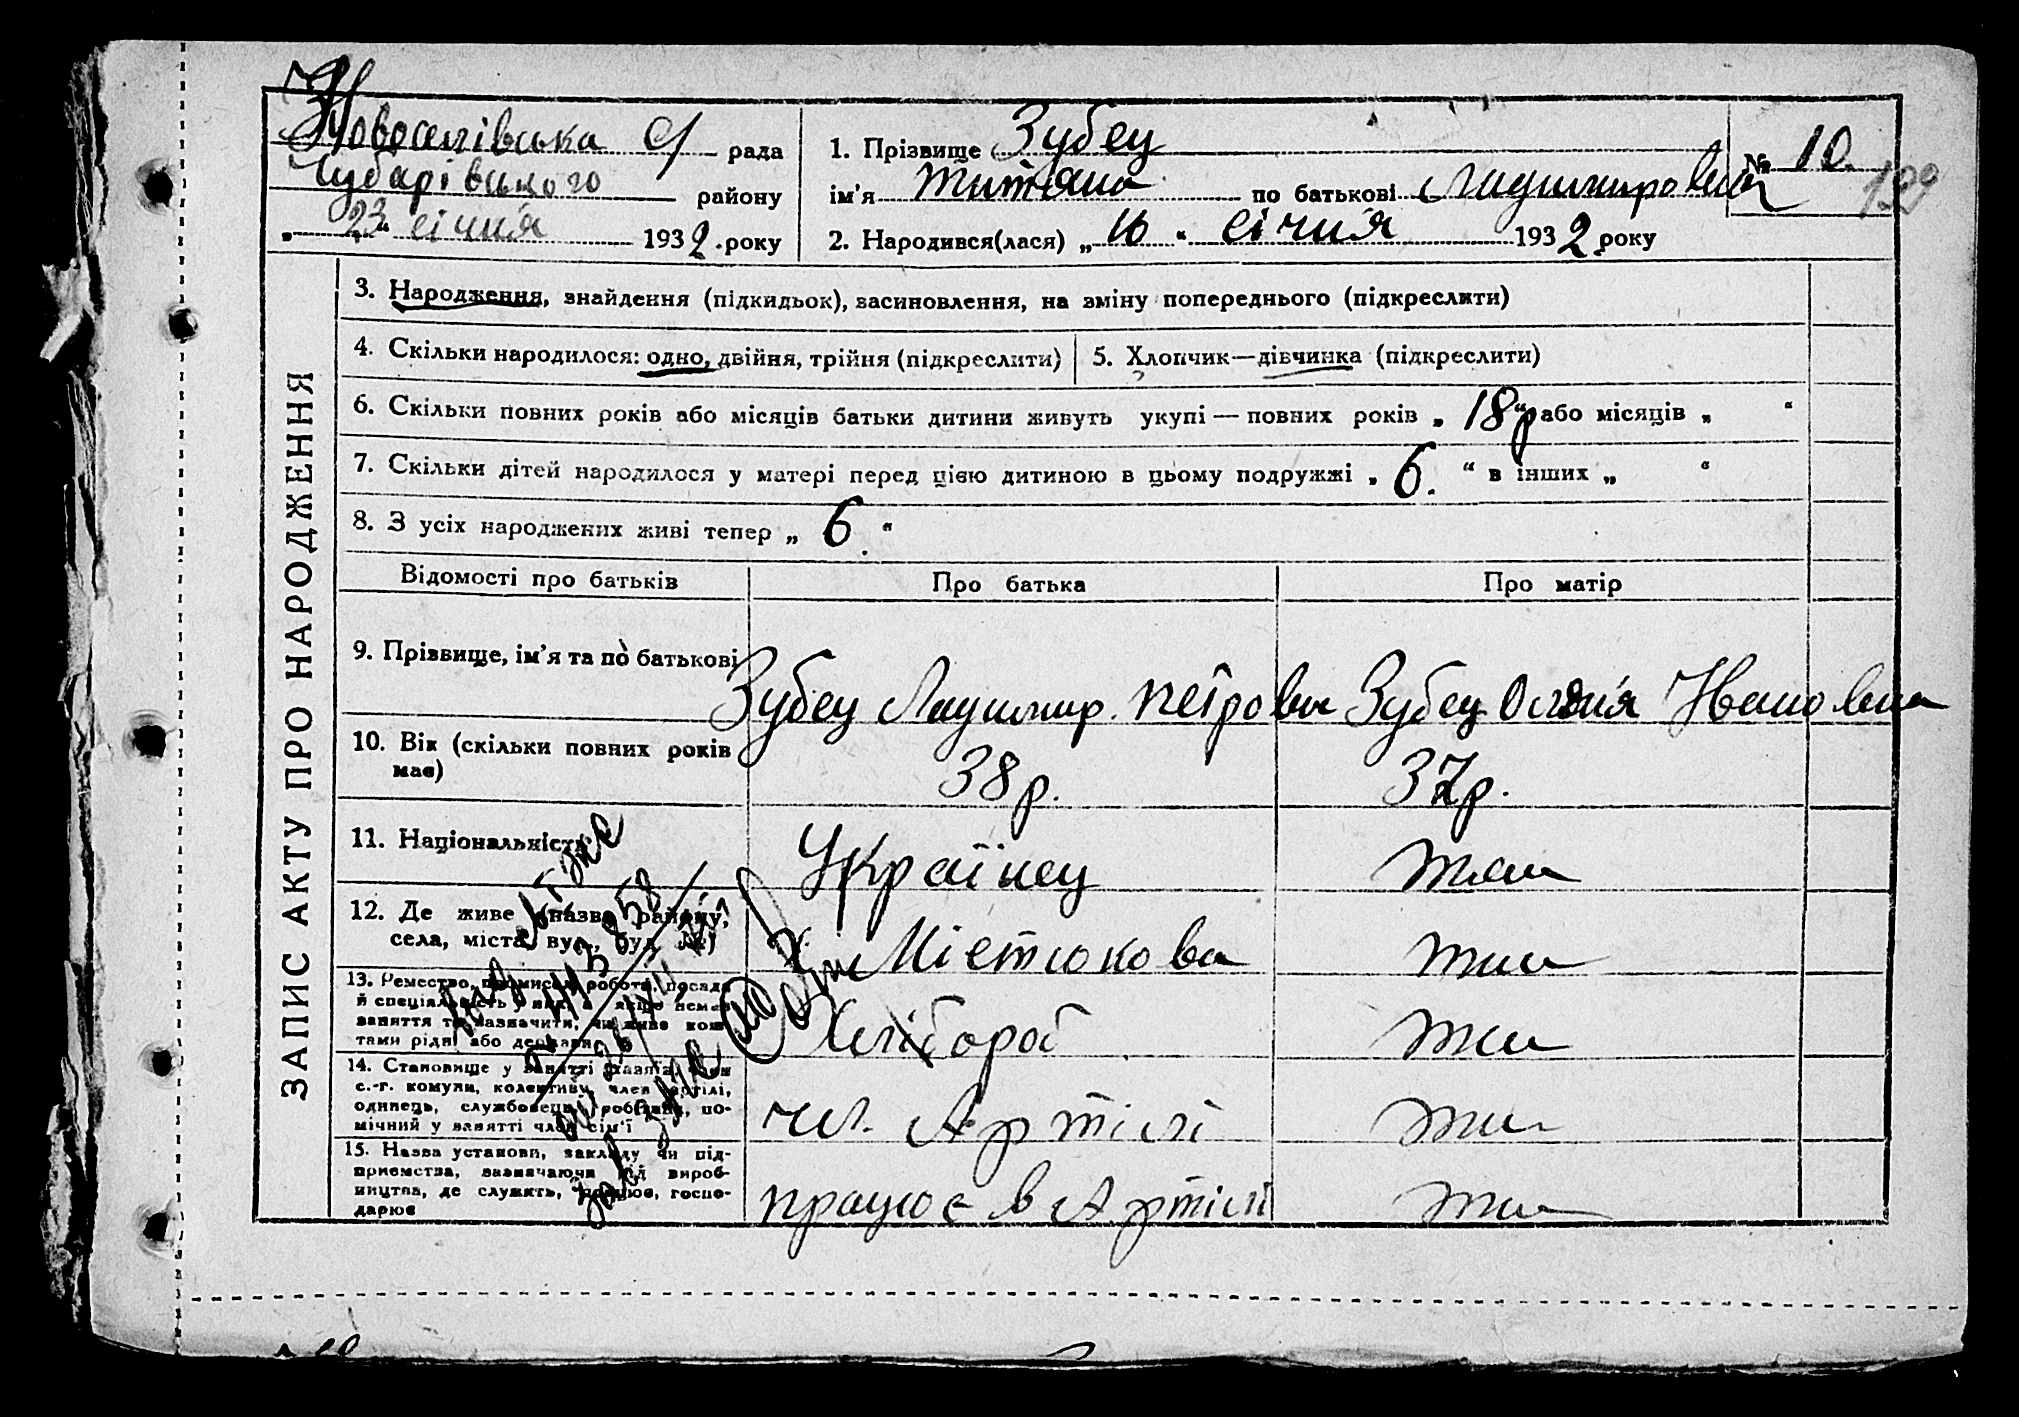 Новоселівська С/ рада
Чубарівського району
„ 23 " січня 1932 року
1. Прізвище Зубец
ім'я Титяна по батькові
2. Народився(лася) „ 16 " січня 1932 року
№ 10
199
ЗАПИС АКТУ ПРО НАРОДЖЕННЯ
3. Народження, знайдення (підкидьок), засиновлення, на зміну попереднього (підкреслити)
4. Скільки народилося: одно, двійня, трійня (підкреслити)
5. Хлопчик—дівчинка (підкреслити)
6. Скільки повних років або місяців батьки дитини живуть укупі — повних років „ 18 "р або місяців „ "
7. Скільки дітей народилося у матері перед цією дитиною в цьому подружжі „ 6. " в інших „ "
8. З усіх народжених живі тепер „ 6. "
Відомості про батьків Про батька Про матір
9. Прізвище, ім'я та по батькові Зубец Петрович Зубец Ивановна
10. Вік (скільки повних років має) 38 р. 37 р.
11. Національність Українец тии
12. Де живе (назва району,
села, міста, вул., буд. №) тии
13. Ремество, промисел, робота, посада
й спеціальність у них, а якщо немає
заняття то зазначити, чи живе кош-
тами рідні або держави Хлібороб тии
14. Становище у занятті (хазяїн, член
с.-г. комуни, колективу, член артілі,
одинець, службовець, робітник, по-
мічний у занятті член сім'ї чл. Артілі тии
15. Назва установи, закладу чи під-
приємства, зазначаючи від вироб-
ництва, де служить, працює, госпо-
дарює працює в Артілі тии